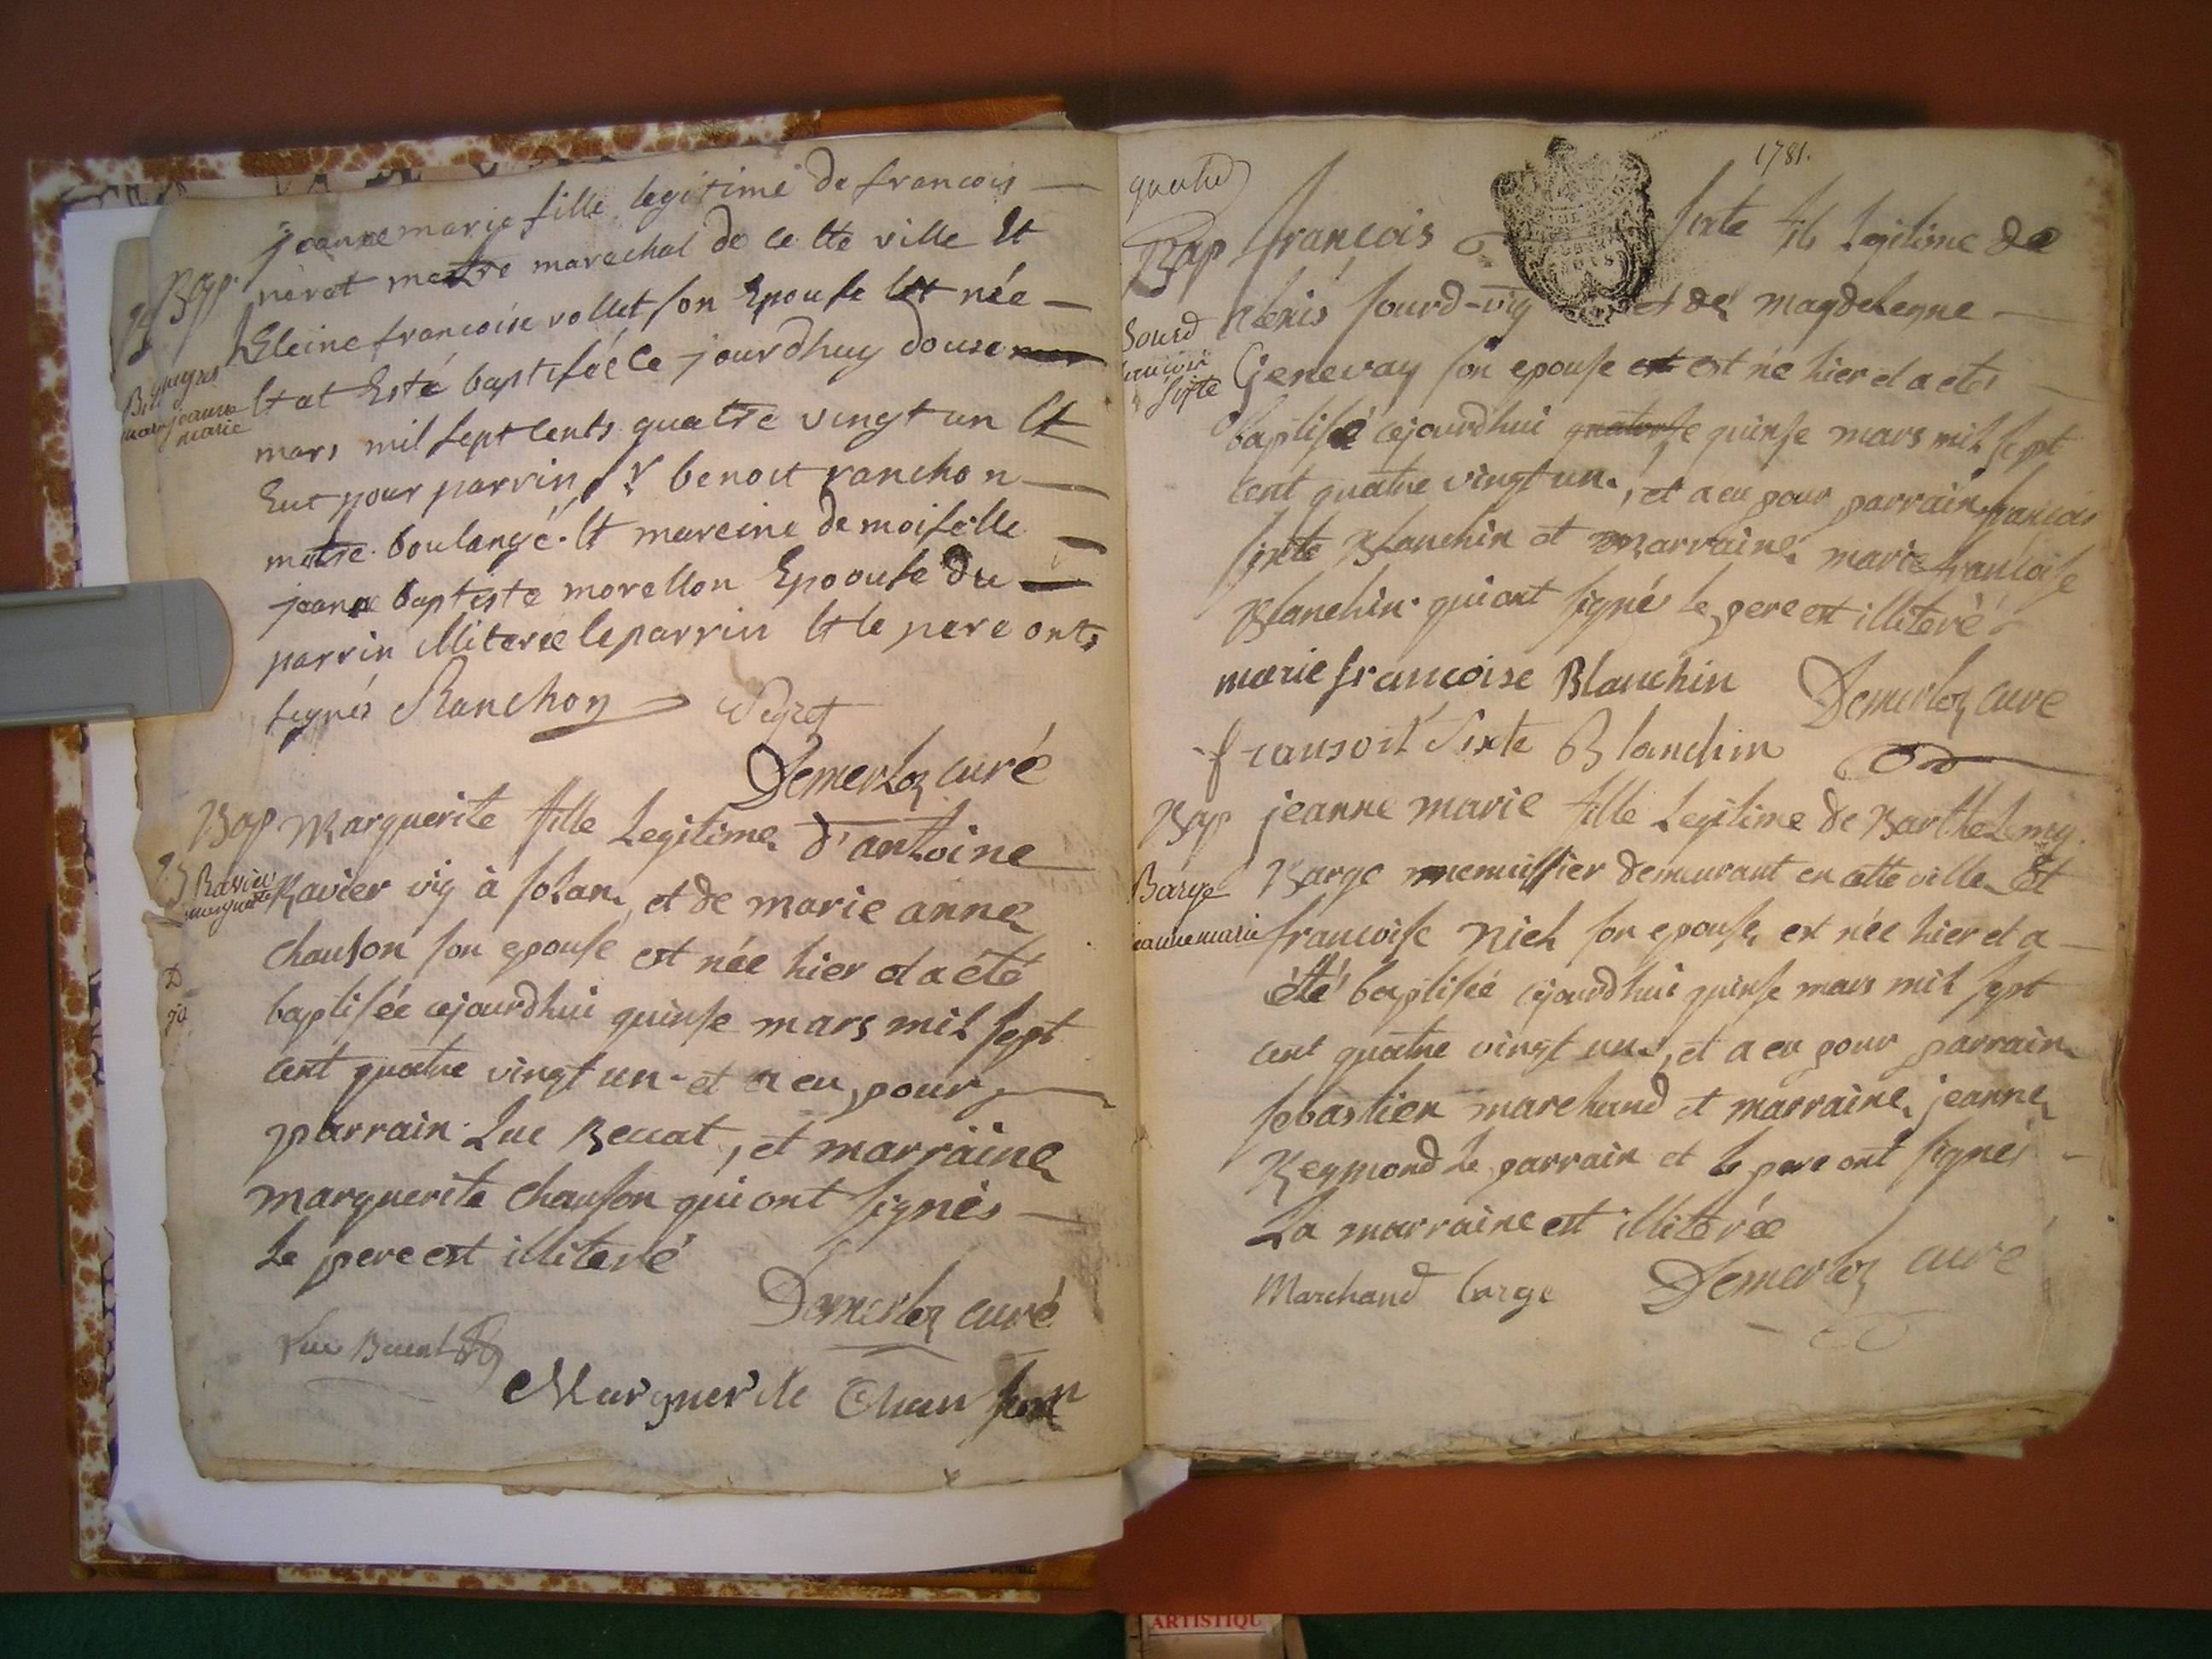 jeanne marie fille legitime de francois
Bap. neret maitre marechal de ce tte ville Et
Eleine francoise rollet son Epouse Est née
Et at Esté baptisée ce jourdhuy douse
jeanne
marie
mars mil sept cents quatre vingt un Et
Eut pour parrin sr benoit ranchon
maitre boulangé Et mareine demoiselle
jeanne baptiste morellon Epoouse du
parrin illiterée le parrin Et le pere onts
signés Ranchon
Demerloz curé
Bap Marguerite fille Legitime d'antoine
Ravier
marguerite
Ravier vig à solan et de marie anne
chanson son epouse est née hier et a été
baptisée cejourdhui quinse mars mil sept
cent quatre vingt un et a eu pour
parrain Luc Beccat, et marraine
marguerite chanson qui ont signés
Le pere est illiteré
Demerloz curé
Luc Beccat
Marguerite Chanson
1781.
Bap francois sixte fils Legitime de
Sourd
francois
Sixte
Alexis sourd vig et de magdeleyne
Genevay son epouse est né hier et a eté
baptisé cejourdhui quatorse quinse mars mil sept
cent quatre vingt un, et a eu pour parrain francois
sixte Blanchin et marraine marie francoise
Blanchin qui ont signés le pere est illiteré
marie francoise Blanchin Demerloz curé
fransoit Sixte Blanchin
Bap jeanne marie fille Legitime de Barthelemy
Barge
jeanne marie
Barge menuissier demeurant en cette ville Et
francoise Niel son epouse, est née hier et a
été baptisée cejourdhui quinse mars mil sept
cent quatre vingt un, et a eu pour parrain
sebastien marchand et marraine jeanne
Reymond le parrain et le pere ont signés
La marraine est illiterée
Marchand barge Demerloz curé
ARTISTIQU